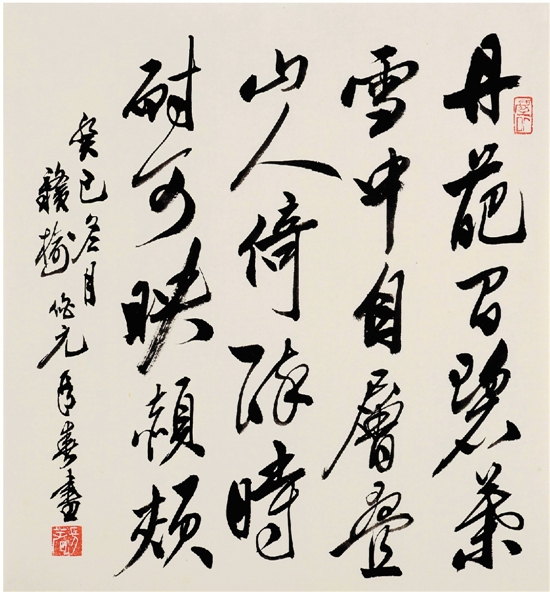 丹葩間碧葉
雪中自層疊
山人倚醉時
耐可映頰
癸巳冬月
贛榆元春書